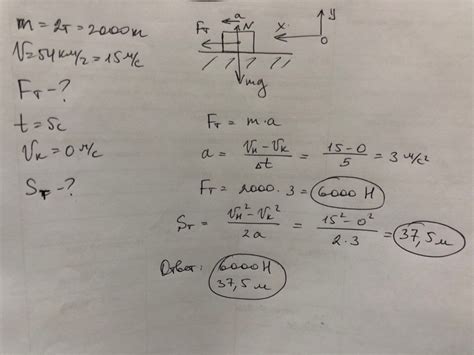 m = 2т = 2000кг
V = 54 км/ч = 15 м/с
Fт - ?
t = 5с
Vк = 0 м/с
Sт - ?
Fт
a
N
X
y
0
mg
Fт = m·a
a = (Vн - Vк)/Δt = (15 - 0)/5 = 3 м/с²
Fт = 2000 · 3 = 6000 Н
Sт = (Vн² - Vк²)/2a = (15² - 0²)/(2·3) = 37,5 м
Ответ: 6000 Н
37,5 м